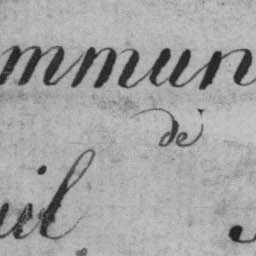 ommun
de
uil